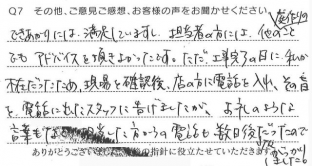 Q7 その他、ご意見ご感想、お客様の声をお聞かせください。
できあがりには、満足していますし、担当者の方には、他のこと
でもアドバイスを頂きよかったです。ただ、工事完了の日に、私が
不在だったため、現場を確認後、店の方に電話を入れ、その旨
を、電話にでたスタッフに告げましたが、お礼のような
言葉もなく 担当した方からの電話も数日後だったので
がっかり
しました。
ありがとうございました の指針に役立たせていただきます